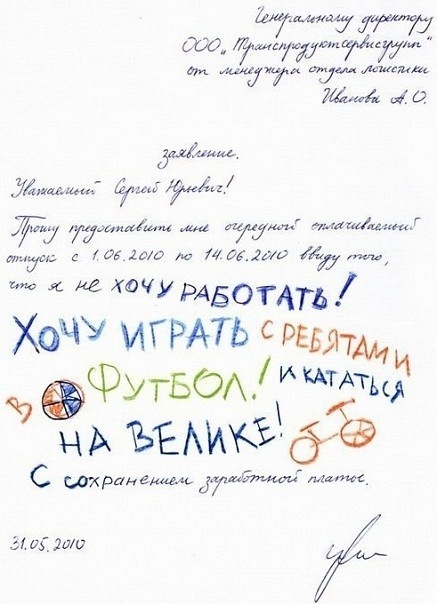 Генеральному директору
ООО „Транспродуктсервисгрупп"
от менеджера отдела логистики
Иванова А.О.
заявление.
Уважаемый Сергей Юрьевич!
Прошу предоставить мне очередной оплачиваемый
отпуск с 1.06.2010 по 14.06.2010 ввиду того,
что я не хочу РАБОТАТЬ!
ХОЧУ ИГРАТЬ С РЕБЯТАМИ
В ФУТБОЛ! И КАТАТЬСЯ
НА ВЕЛИКЕ!
С сохранением заработной платы.
31.05.2010